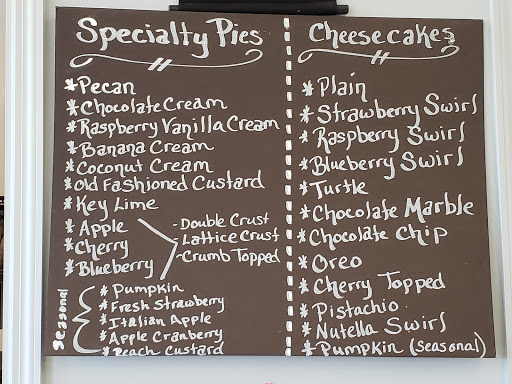 Specialty Pies
*Pecan
*Chocolate Cream
*Raspberry Vanilla Cream
*Banana Cream
*Coconut Cream
*Old Fashioned Custard
*Key Lime
*Apple
*Cherry
*Blueberry
-Double Crust
-Lattice Crust
-Crumb Topped
Seasonal
*Pumpkin
*Fresh Strawberry
*Italian Apple
*Apple Cranberry
*Peach Custard
Cheesecakes
*Plain
*Strawberry Swirl
*Raspberry Swirl
*Blueberry Swirl
*Turtle
*Chocolate Marble
*Chocolate Chip
*Oreo
*Cherry Topped
*Pistachio
*Nutella Swirl
*Pumpkin (seasonal)